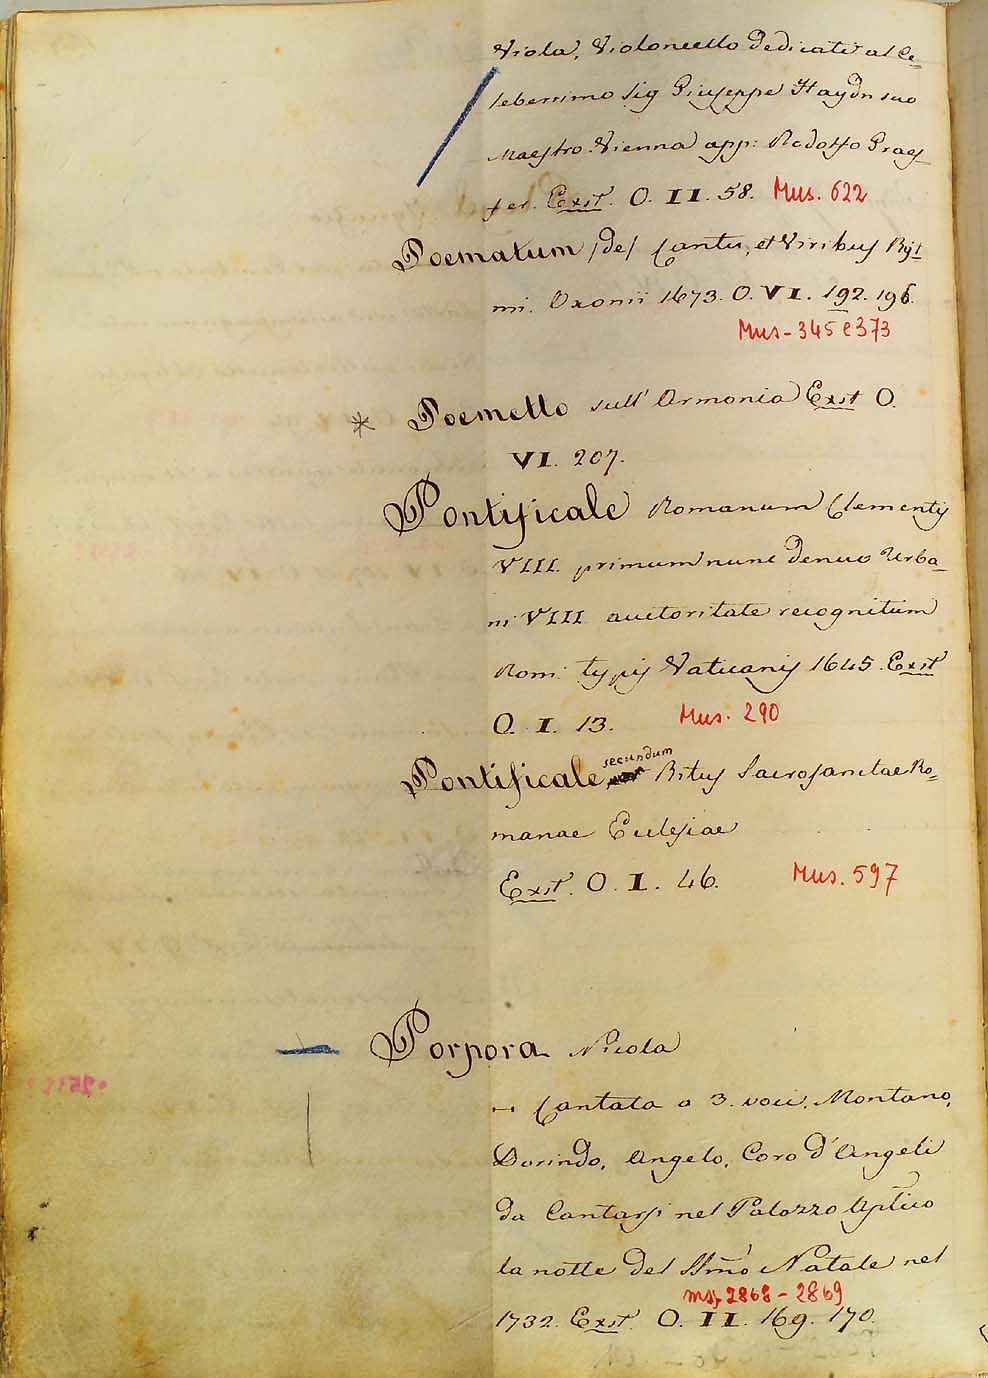 Viola, Violoncello dedicati al Ce=
leberrimo Sig Giuseppe Haydn suo
Maestro. Vienna app: Rodolfo Graef_
fer. Exst. O. II. 58. Mus. 622
Poematum /de/ Cantu, et Viribus Ryt
mi. Oxonii 1673. O. VI. 192. 196.
Mus - 345 e 373
* Poemetto sull' Armonia Exst O.
VI. 207.
Pontificale Romanum Clementis
VIII. primum nunc denuo Urba_
ni VIII auctoritate recognitum
Rom: typis Vaticanis 1645. Exst
O. I. 13. Mus. 290
secundum
Pontificale Ritus Sacrosanctae Ro=
manae Eclesiae
Exst. O. I. 46. Mus. 597
Porpora Nicola
-- Cantata a 3. voci. Montano,
Dorindo, Angelo, Coro d'Angeli
da Cantarsi nel Palazzo Aplico
la notte del SSmo Natale nel
mss 2868 - 2869
1732. Exst. O. II. 169. 170.